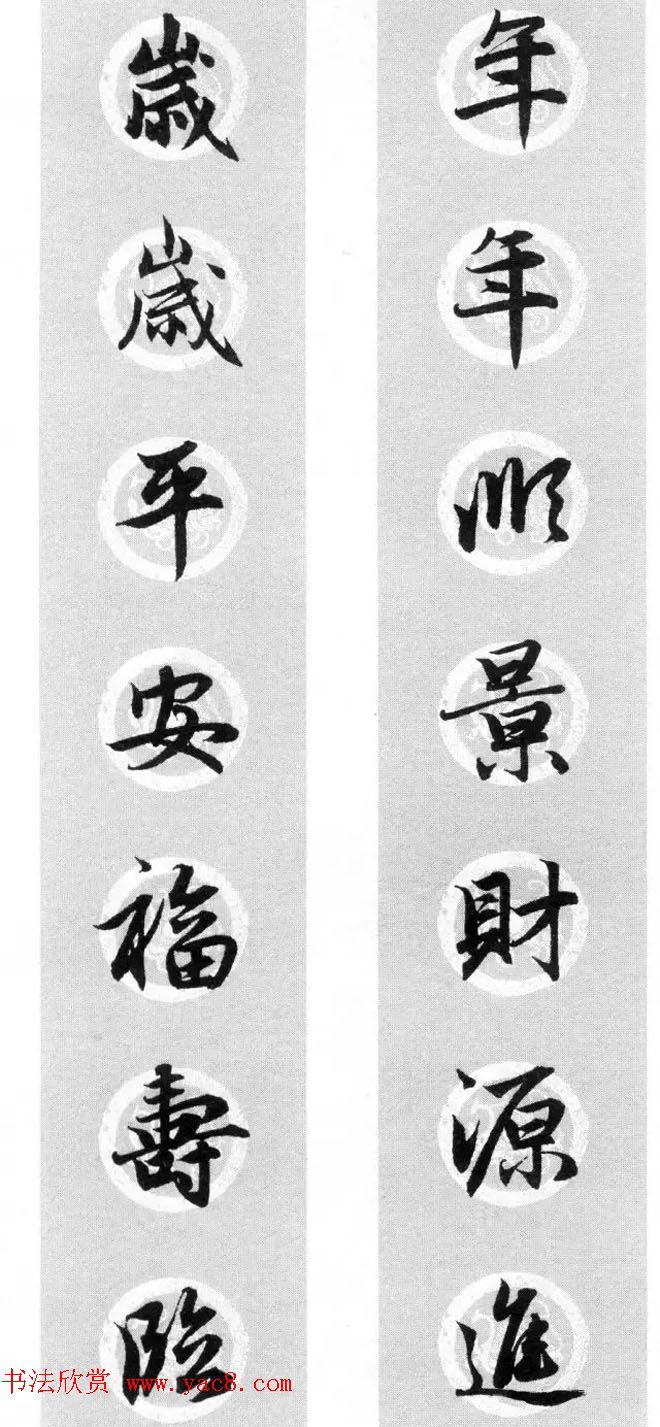 年年順景財源進
歲歲平安福壽臨
书法欣赏 www.yac8.com